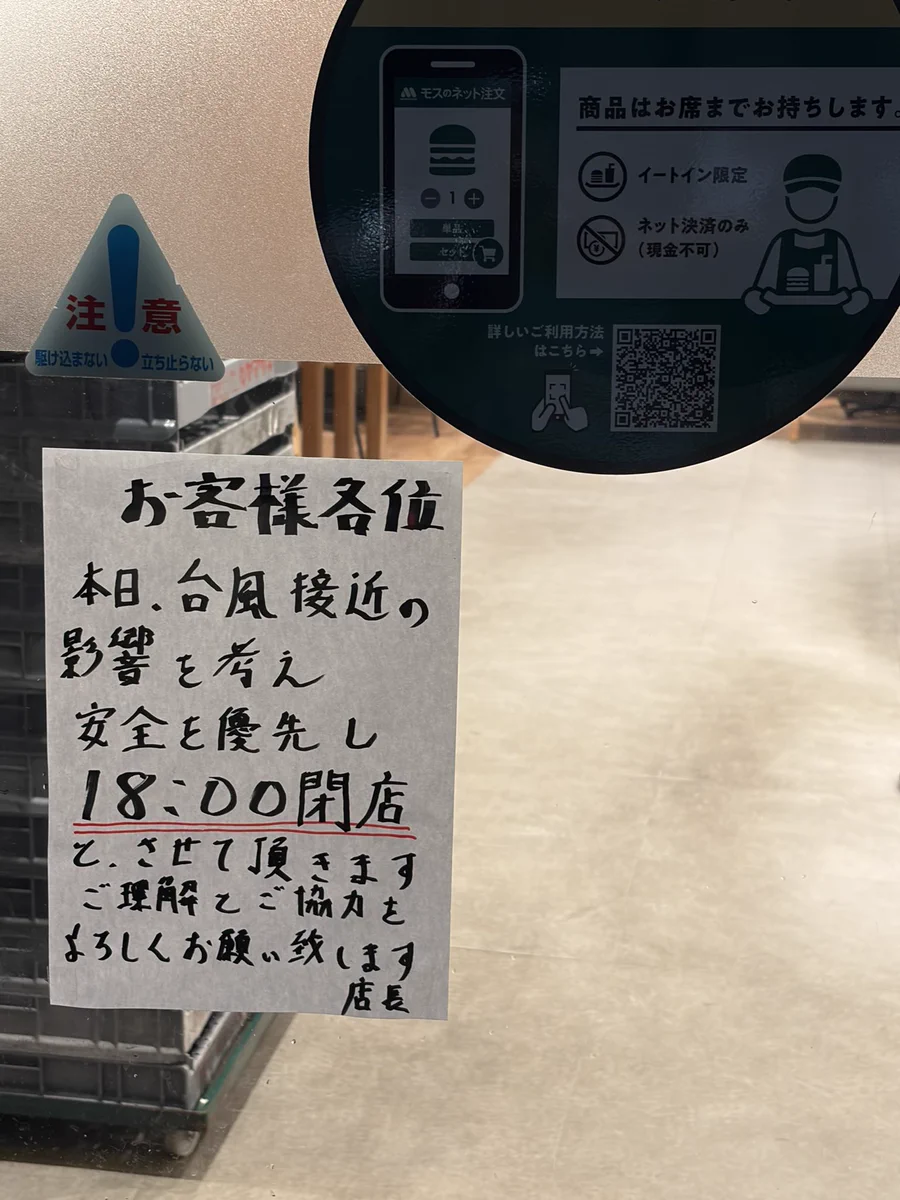 モスのネット注文
1
単品
セット
商品はお席までお持ちします。
イートイン限定
ネット決済のみ
（現金不可）
詳しいご利用方法
はこちら→
注意
駆け込まない 立ち止らない
お客様各位
本日、台風接近の
影響を考え
安全を優先し
18:00閉店
と、させて頂きます
ご理解とご協力を
よろしくお願い致します
店長